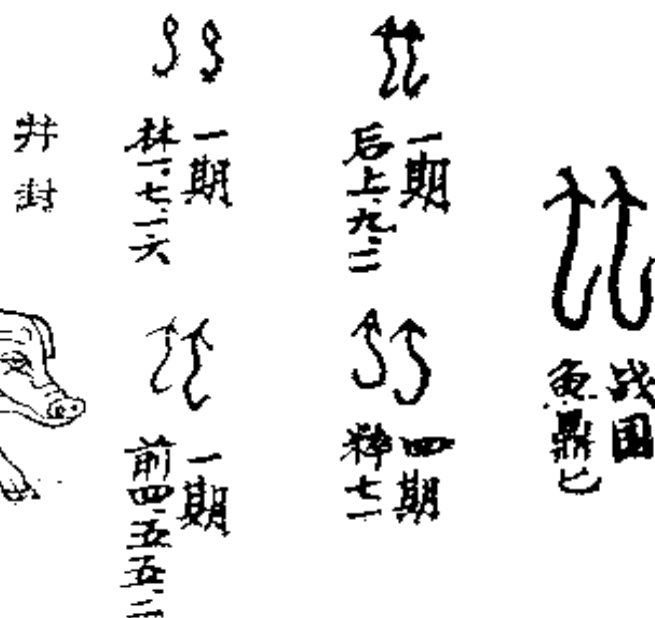 战国
鱼鼎匕
一期
后上.九.三
四期
粹七一
一期
林一.七.一六
一期
前四.五五.
并封